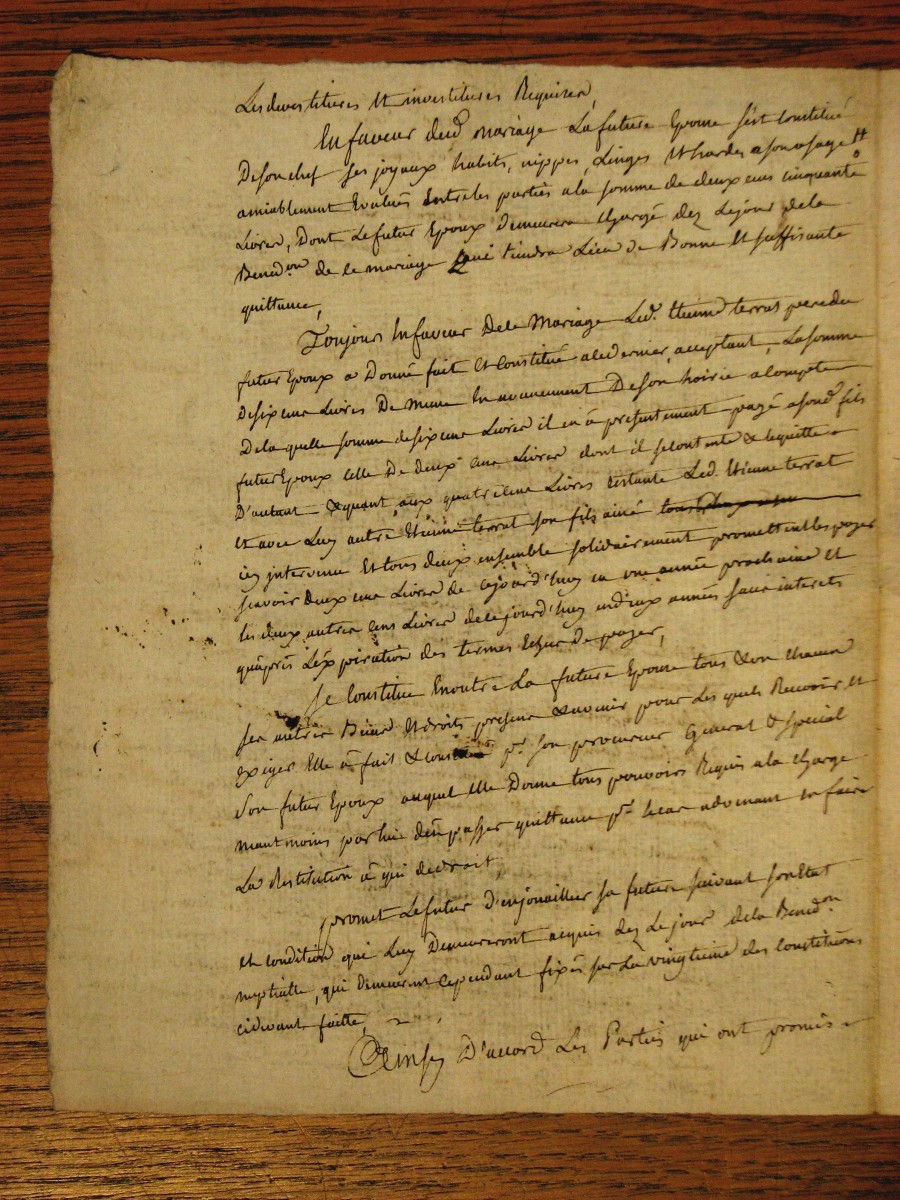 Les devestitures et investitures Requises,
En faveur dud mariage La future Epouse s'est constitué
De son chef ses joyaux habits, nippes, Linges et hardes a son usage
amiablement Evalués Entre les parties a la somme de deux cens cinquante
Livres, Dont Le futur Epoux demeurera chargé dez Le jour de la
Bened.on de ce mariage qui tiendra Lieu de Bonne et suffisante
quittance,
Toujours En faveur De ce Mariage Led. Etienne terrat pere du
futur Epoux a Donné fait et constitué a ce dernier, acceptant, La somme
De six cens Livres De meme En avancement De son hoirie a compte
De la quelle somme de six cens Livres il en a présentement payé a sond. fils
futur Epoux celle De deux cens Livres dont il se contente & le quitte
D'autant & quant aux quatre cens Livres restante Led. Etienne terrat
et avec Luy autre Etienne terrat son fils ainé
icy intervenu Et tous deux ensemble solidairement promettent les payer
sçavoir deux cens Livres de cejourd'huy en une année prochaine et
les deux autres cens Livres de cejourd'huy en deux années sans interets
qu'après L'éxpiration des termes Echus de payer,
Se Constitue En outre La future Epouse tous & un chacun
ses autres Biens Et droits présens & avenir pour Les quels Recevoir et
exiger Elle à fait & constitué p.r son procureur General & special
son futur Epoux auquel Elle Donne tous pouvoirs Requis a la charge
neantmoins par lui d'en passer quittance p.r le cas advenant en faire
La Restitution à qui de droit,
promet Le futur d'enjouailler sa future suivant son Etat
et condition qui Luy Demeureront acquis dez Le jour de la Bened.on
nuptialle, qui demeurent cependant fixés sur La vingtieme des constitutions
cidevant faitte,
Ainsy D'accord Les Parties qui ont promis